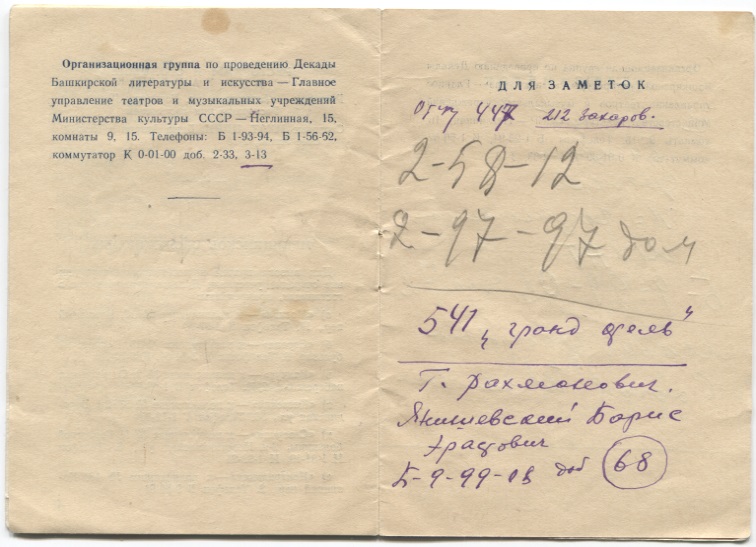 Организационная группа по проведению Декады
Башкирской литературы и искусства — Главное
управление театров и музыкальных учреждений
Министерства культуры СССР — Неглинная, 15,
комнаты 9, 15. Телефоны: Б 1-93-94, Б 1-56-62,
коммутатор К 0-01-00 доб. 2-33, 3-13
ДЛЯ ЗАМЕТОК
447 212 Захаров.
2-58-12
2-97-97 дом
541 „гранд отель"
Г. Рахманович.
Борис
Эрастович
Б-9-99-08 доб 68